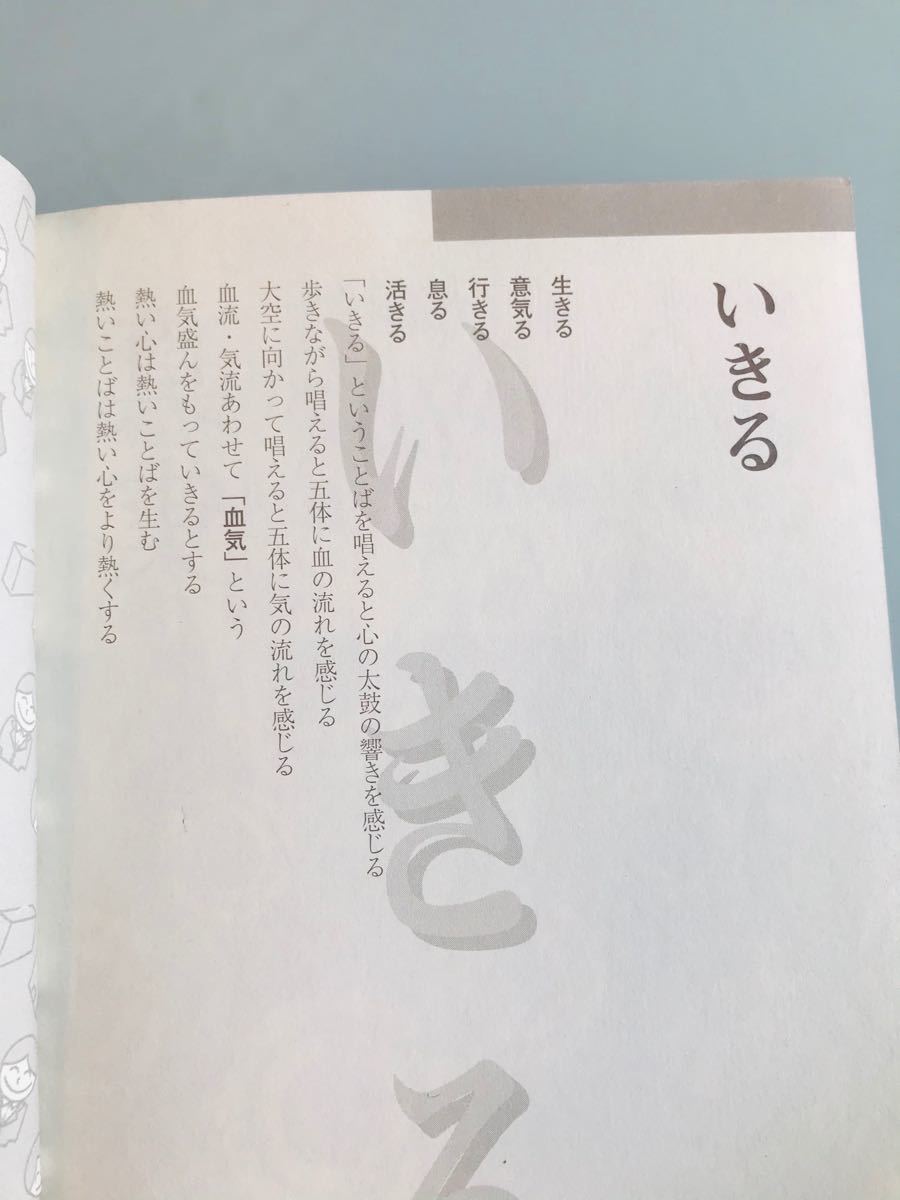 いきる
生きる
意気る
行きる
息る
活きる
「いきる」ということばを唱えると心の太鼓の響きを感じる
歩きながら唱えると五体に血の流れを感じる
大空に向かって唱えると五体に気の流れを感じる
血流・気流あわせて「血気」という
血気盛んをもっていきるとする
熱い心は熱いことばを生む
熱いことばは熱い心をより熱くする
いきる